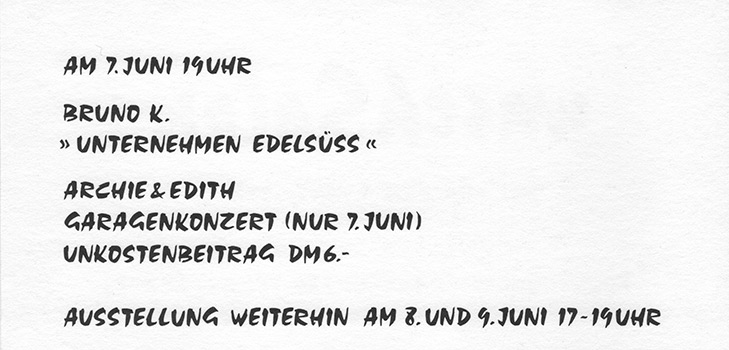 AM 7. JUNI 19 UHR
BRUNO K.
»UNTERNEHMEN EDELSÜSS«
ARCHIE & EDITH
GARAGENKONZERT (NUR 7. JUNI)
UNKOSTENBEITRAG DM 6.-
AUSSTELLUNG WEITERHIN AM 8. UND 9. JUNI 17-19 UHR